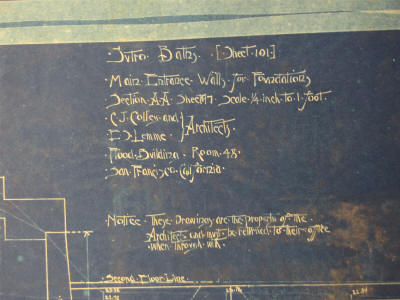 Sutro. Baths. [Sheet 101]
Main. Entrance. Walls. for Foundations
Section. A.A. Sheet 7. Scale. ¼ inch. to. 1. foot.
C.J. Colley. and
E.S. Lemme. } Architects.
Flood. Building. Room. 48.
San. Francisco. California.
Notice. These. Drawings are. the. property of the.
Architects and must be returned to their office
when through. with.
Second. Floor. Line.